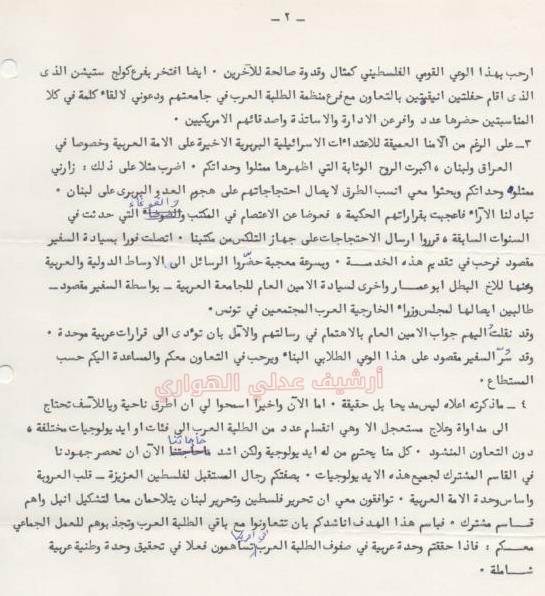 ـ ٢ ـ
ارحب بهذا الوعي القومي الفلسطيني كمثال وقدوة صالحة للآخرين ٠ ايضا افتخر بفرع كولج ستيشن الذى
الذى اقام حفلتين انيقيتين بالتعاون مع فرع منظمة الطلبة العرب في جامعتهم ودعوني لالقاء كلمة في كلا
المناسبتين حضرها عدد وافر عن الادارة والاساتذة واصدقائهم الامريكيين ٠
٣ ـ على الرغم من آلامنا العميقة للاعتداءات الاسرائيلية البربرية الاخيرة على الامة العربية وخصوصا في
العراق ولبنان ، اكبرت الروح الوثابة التي اظهرها ممثلوا وحداتكم ٠ اضرب مثلا على ذلك : زارني
ممثلو وحداتكم وبحثوا معي انسب الطرق لايصال احتجاجاتهم على هجوم العدو البربرى على لبنان ٠
تبادلنا الآراء فاعجبت بقراراتهم الحكيمة ، فعوضا عن الاعتصام في المكتب والغوغاء التي حدثت في
السنوات السابقة ، قرروا ارسال الاحتجاجات على جهاز التلكس من مكتبنا ٠ اتصلت فورا بسيادة السفير
مقصود فرحب في تقديم هذه الخدمة ٠ وبسرعة معجبة حضّروا الرسائل الى الاوساط الدولية والعربية
ومنها للاخ البطل ابو عمار واخرى لسيادة الامين العام للجامعة العربية ـ بواسطة السفير مقصود ـ
طالبين ايصالها لمجلس وزراء الخارجية العرب المجتمعين في تونس ٠
وقد نقلت اليهم جواب الامين العام بالاهتمام في رسالتهم والآمل بان تؤدى الى قرارات عربية موحدة ٠
وقد سُرّ السفير مقصود على هذا الوعي الطلابي البناء ويرحب في التعاون معكم والمساعدة اليكم حسب
المستطاع ٠
أرشيف عدلي الهواري
٤ ـ ماذكرته اعلاه ليس مديحا بل حقيقة ٠ اما الآن واخيرا اسمحوا لي ان اطرق ناحية وياللآسف تحتاج
الى مداواة وعلاج مستعجل الا وهي انقسام عدد من الطلبة العرب الى فئات او ايدولوجيات مختلفة ،
دون التعاون المنشود ٠ كل منا يحترم من له ايدولوجية ولكن اشد حاجاتنا الآن ان نحصر جهودنا
في القاسم المشترك لجميع هذه الايدلوجيات ٠ بصفتكم رجال المستقبل لفلسطين العزيزة ـ قلب العروبة
واساس وحدة الامة العربية ٠ توافقون معي ان تحرير فلسطين وتحرير لبنان يتلاحمان معا لتشكيل انبل واهم
قاسم مشترك ٠ فباسم هذا الهدف اناشدكم بان تتعاونوا مع باقي الطلبة العرب وتجذبوهم للعمل الجماعي
معكم : فاذا حققتم وحدة عربية في صفوف الطلبة العرب في امريكا تساهمون فعلا في تحقيق وحدة وطنية عربية
شاملة ٠